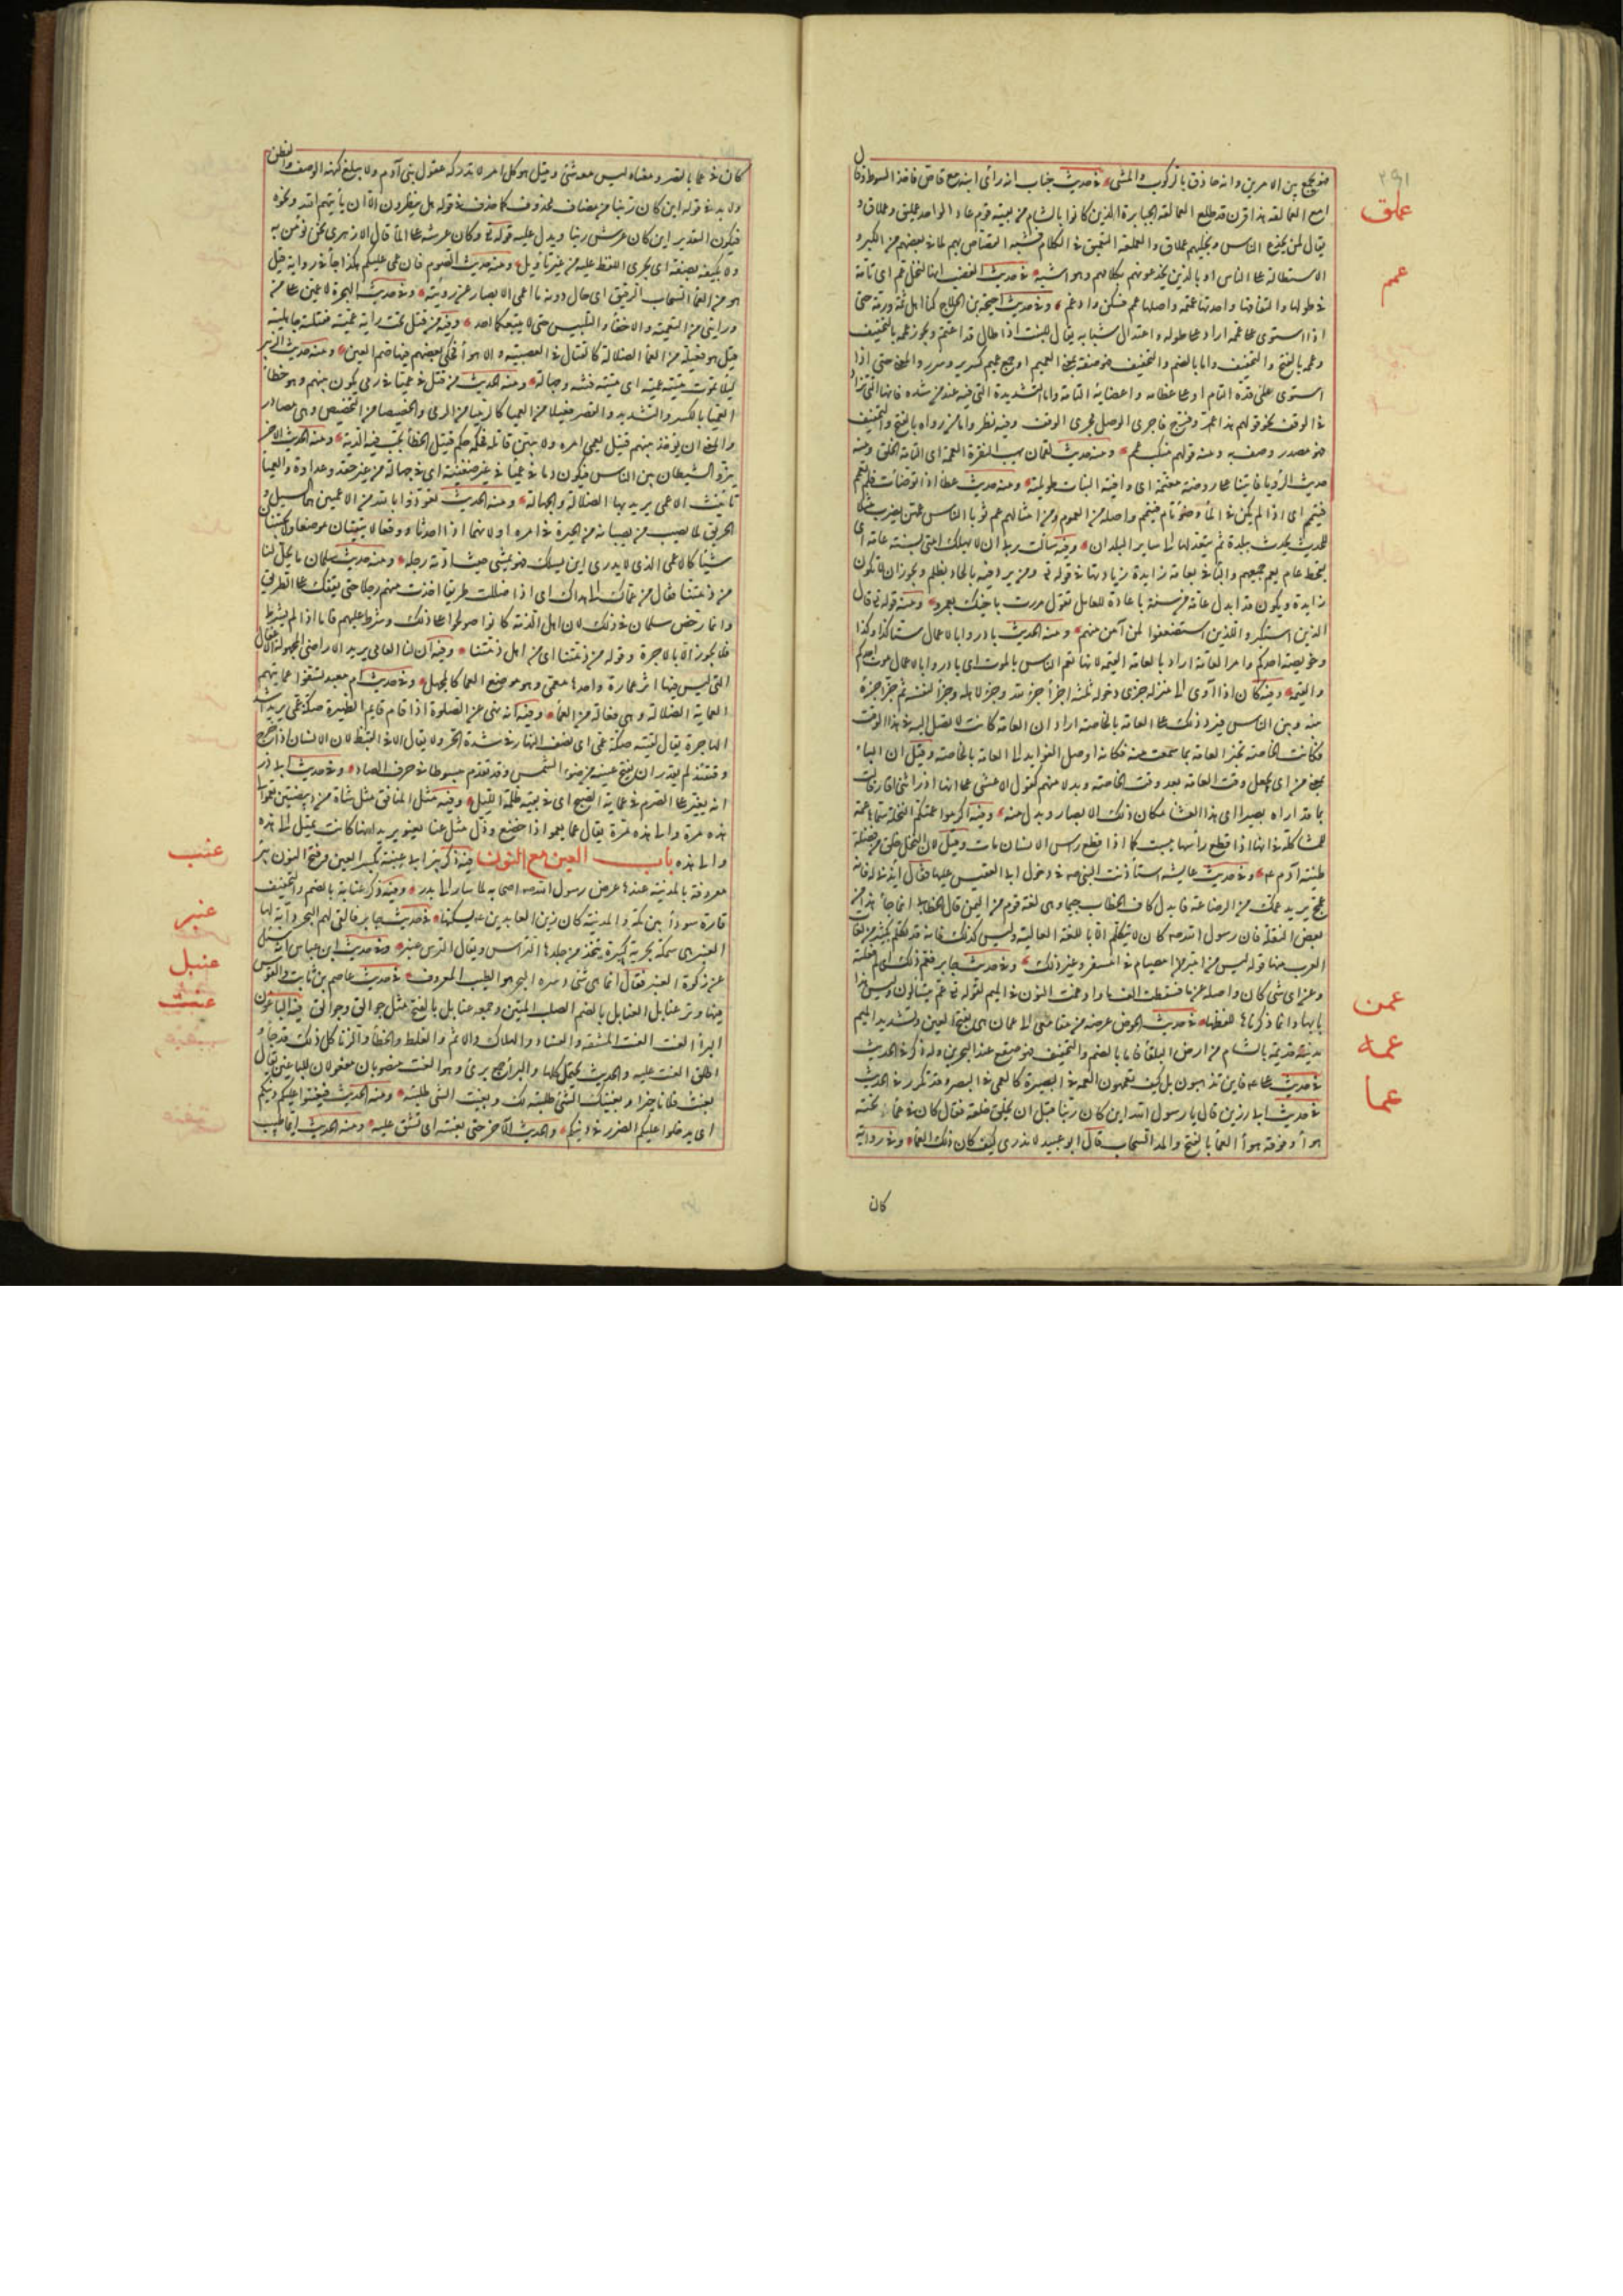 ٢٩١
فهو يجمع بين الامرين وانه حاذق بالركوب والمشى في حديث خباب انه رأى ابنه مع قاص فاخذ السوط وقال
امع العمالقة هذا قرن قد طلع العمالقة الجبابرة الذين كانوا بالشام من بقية قوم عاد الواحد عمليق وعملاق و
يقال لمن يخدع الناس ويخلبهم عملاق والعملقة التعمق في الكلام فشبه القصاص بهم لما في بعضهم من الكبر و
الاستطالة على الناس او بالذين يخدعونهم بكلامهم وهو اشبه في حديث الغصب انها لنخل عم اى تامة
في طولها والتفافها واحدتها عميمة واصلها عمم فسكن وادغم وفى حديث احيحة بن الجلاح كنا اهل ثمه ورمه حتى
اذا استوى على عممه اراد على طوله واعتدال شبابه يقال للنبت اذا طال قد اعتم ويجوز عممه بالتخفيف
وعممه بالفتح والتخفيف واما بالضم والتخفيف فهو صفة بمعنى العميم او جمع عميم كسرير وسرر والمعنى حتى اذا
استوى على قده التام او على عظامه واعضائه التامة واما التشديدة التى فيه عند من شدده فانها التى تزاد
في الوقف نحو قولهم هذا عمر وفرج فاجرى الوصل مجرى الوقف وفيه نظر واما من رواه بالفتح والتخفيف
فهو مصدر وصف به ومنه قولهم منكب عمم ومنه حديث لقمان يهب البقرة العممة اى التامة الخلق ومنه
حديث الرؤيا فاتينا على روضة معتمة اى وافية النبات طويلته ومنه حديث عطا اذا توضأت فلم تعمم
فتيمم اى اذا لم يكن في الماء وضوء تام فتيمم واصله من العموم ومن امثالهم عم ثوبا الناعس يضرب مثلا
للحدث يحدث ببلدة ثم يتعداها الى ساير البلدان وفيه سألت ربى ان لا يهلك امتى بسنة عامة اى
بقحط عام يعم جميعهم والباء في بعامة زايدة زيادتها في قوله تع ومن يرد فيه بالحاد بظلم ويجوز ان لا تكون
زايدة ويكون قد ابدل عامة من سنة باعادة العامل تقول مررت باخيك بعمرو ومنه قوله تع قال
الذين استكبروا للذين استضعفوا لمن آمن منهم ومنه الحديث بادروا بالاعمال ستا كذا وكذا
وخويصة احدكم وامر العامة اراد بالعامة القيمة لانها تعم الناس بالموت اى بادروا بالاعمال موت احدكم
والقيمة وفيه كان اذا آوى الى منزله جزى دخوله ثلثة اجزأ جزء لله وجزء لاهله وجزأ لنفسه ثم جزأ جزءه
بينه وبين الناس فيرد ذلك على العامة بالخاصة اراد ان العامة كانت لا تصل اليه في هذا الوقت
فكانت الخاصة تخبر العامة بما سمعت منه فكانه اوصل الفوايد الى العامة بالخاصة وقيل ان الباء
بمعنى من اى يجعل وقت العامة بعد وقت الخاصة وبدلا منهم كقول الاعشى على انها اذ رأتنى اقاد قالت
بما قد اراه بصيرا اى هذا العشا مكان ذلك الابصار وبدل منه وفيه اكرموا عمتكم النخلة سماها عمة
للمشاكلة في انها اذا قطع رأسها يبست كما اذا قطع راس الانسان مات وقيل لان النخل خلق من فضلة
طينة آدم ع وفى حديث عايشه استأذنت النبى ص في دخول ابى القعيس عليها فقال ايذنى له فانه
عمج يريد عمك من الرضاعة فابدل كاف الخطاب جيما وهى لغة قوم من اليمن قال الخطابى انما جاء هذا من
بعض النقلة فان رسول الله ص كان لا يتكلم الا باللغة العالية وليس كذلك فانه قد تكلم بكثير من لغات
العرب منها قوله ليس من امبر امصيام في امسفر وغير ذلك وفى حديث جابر فعم ذلك اى لم فعلته
وعن اى شى كان واصله عن ما فسقطت الف ما وادغمت النون في الميم لقوله تع عم يتسالون وليس هذا
بابها وانما ذكرناها للفظها في حديث الحوض عرضه من مقامى الى عمان هى بفتح العين وتشديد الميم
مدينة قديمة بالشام من ارض البلقا فاما بالضم والتخفيف فهو صقع عند البحرين وله ذكر في الحديث
في حديث على ع فاين تذهبون بل كيف تعمهون العمه في البصيرة كالعمى في البصر وقد تكرر في الحديث
في حديث ابى رزين قال يا رسول الله اين كان ربنا قبل ان يخلق خلقه فقال كان في عماء تحته
هوأ وفوقه هوأ العمأ بالفتح والمد السحاب قال ابو عبيد لا ندرى كيف كان ذلك العمأ وفى رواية
عملق
عمم
عمن
عمه
عما
كان
كان في عما بالقصر ومعناه ليس معه شئ وقيل هو كل امر لا تدركه عقول بنى آدم ولا يبلغ كنهه الوصف والفطن
ولا بد في قوله اين كان ربنا من مضاف محذوف كما حذف في قوله هل ينظرون الا ان يأتيهم الله ونحوه
فيكون التقدير اين كان عرش ربنا ويدل عليه قوله تع وكان عرشه على الماء قال الازهرى نحن نؤمن به
ولا نكيفه بصفة اى نجرى اللفظ عليه من غير تأويل ومنه حديث الصوم فان عمى عليكم هكذا جأ في رواية قيل
هو من العمأ السحاب الرقيق اى حال دونه ما اعمى الابصار عن رؤيته وفى حديث الهجرة لاعمين على من
ورائى من التعمية والاخفأ والتلبيس حتى لا يتبعكما احد وفيه من قتل تحت راية عمية فقتلته جاهلية
قيل هو فعيلة من العمأ الضلالة كالقتال في العصبية والاهوأ وحكى بعضهم فيها ضم العين ومنه حديث الزبير
لئلا نموت ميتة عمية اى ميتة فتنة وجهالة ومنه الحديث من قتل في عميا في رمى يكون بينهم وهو خطأ
العميا بالكسر والتشديد والقصر فعيلا من العمى كالرميا من الرمى والخصيصا من التخصيص وهى مصادر
والمعنى ان يوجد بينهم قتيل يعمى امره ولا يتبين قاتله فحكمه حكم قتيل الخطأ تجب فيه الدية ومنه الحديث الاخر
ينزو الشيطان بين الناس فيكون دما في عميا في غير ضغينة اى في جهالة من غير حقد وعداوة والعميا
تانيث الاعمى يريد بها الضلالة والجهالة ومنه الحديث تعوذوا بالله من الاعميين هما السيل و
الحريق لما يصيب من يصيبانه من الحيرة في امره او لانهما اذا حدثا ووقعا لا يتقيان موضعا ولا يتجنبان
شيئا كالاعمى الذى لا يدرى اين يسلك فهو يمشى حيث ادته رجله ومنه حديث سلمان ما يحل لنا
من ذمتنا فقال من عماك الى هداك اى اذا ضللت طريقا اخذت منهم رجلا حتى يقفك على الطريق
وانما رخص سلمان في ذلك لان اهل الذمة كانوا صولحوا على ذلك وشرط عليهم فاما اذا لم يشرط
فلا يجوز الا بالاجرة وقوله من ذمتنا اى من اهل ذمتنا وفيه ان لنا المعامى يريد الاراضى المجهولة الاغفال
التى ليس فيها اثر عمارة واحدها معمى وهو موضع العما كالمجهل وفى حديث ام معبد تسفهوا عمايتهم
العماية الضلالة وهى فعالة من العمأ وفيه انه نهى عن الصلوة اذا قام قايم الظهيرة صكة عمى يريد اشد
الهاجرة يقال لقيته صكة عمى اى نصف النهار في شدة الحر ولا يقال الا في القيظ لان الانسان اذا خرج
وقتئذ لم يقدر ان يفتح عينيه من ضوء الشمس وقد تقدم مبسوطا في حرف الصاد وفى حديث ابى ذر
انه يغير على الصرم في عماية الصبح اى في بقية ظلمة الليل وفيه مثل المنافق مثل شاة من ربيضتين تعمو الى
هذه مرة والى هذه مرة يقال عما يعمو اذا خضع وذل مثل عنا يعنو يريد انها كانت تميل الى هذه
والى هذه باب العين مع النون فيه ذكر بئر ابى عنبة بكسر العين وفتح النون بئر
معروفة بالمدينة عندها عرض رسول الله ص اصحابه لما سار الى بدر وفيه ذكر عنابة بالضم والتخفيف
قارة سودأ بين مكة والمدينة كان زين العابدين ع يسكنها في حديث جابر فالقى لهم البحر دابة يقال لها
العنبر هى سمكة بحرية كبيرة يتخذ من جلدها التراس ويقال الترس عنبر وفى حديث ابن عباس انه سئل
عن زكوة العنبر فقال انما هى شئ دسره البحر هو الطيب المعروف في حديث عاصم بن ثابت والقوس
فيها وتر عنابل العنابل بالضم الصلب المتين وجمعه عنابل بالفتح مثل جوالق وجوالق فيه الباغون
البرأ العنت العنت المشقة والفساد والهلاك والاثم والغلط والخطأ والزنا كل ذلك قد جأ و
اطلق العنت عليه والحديث يحتمل كلها والبرأ جمع برئ وهو والعنت منصوبان مفعولان للباغين يقال
بغيت فلانا خيرا وبغيتك الشئ طلبته لك وبغيت الشئ طلبته ومنه الحديث فيعنتوا عليكم دينكم
اى يدخلوا عليكم الضرر في دينكم والحديث الاخر حتى تعنته اى تشق عليه ومنه الحديث ايما طبيب
عنب
عنبر
عنبل
عنت